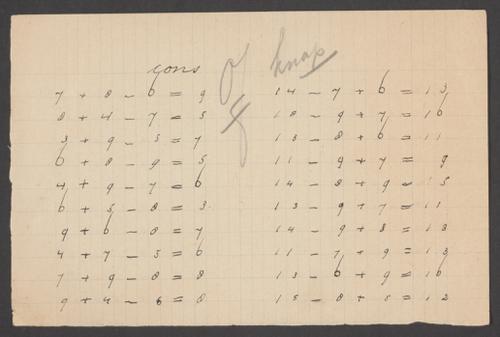 gons
knap
7 + 8 – 6 = 9
8 + 4 – 7 = 5
3 + 9 – 5 = 7
6 + 8 – 9 = 5
4 + 9 – 7 = 6
6 + 5 – 8 = 3
9 + 6 – 8 = 7
4 + 7 – 5 = 6
7 + 9 – 8 = 8
9 + 4 – 6 = 8
14 – 7 + 6 = 13
18 – 9 + 7 = 16
13 – 8 + 6 = 11
11 – 9 + 7 = 9
14 – 8 + 9 = 15
13 – 9 + 7 = 11
14 – 9 + 8 = 13
11 – 7 + 9 = 13
13 – 6 + 9 = 16
15 – 8 + 5 = 12